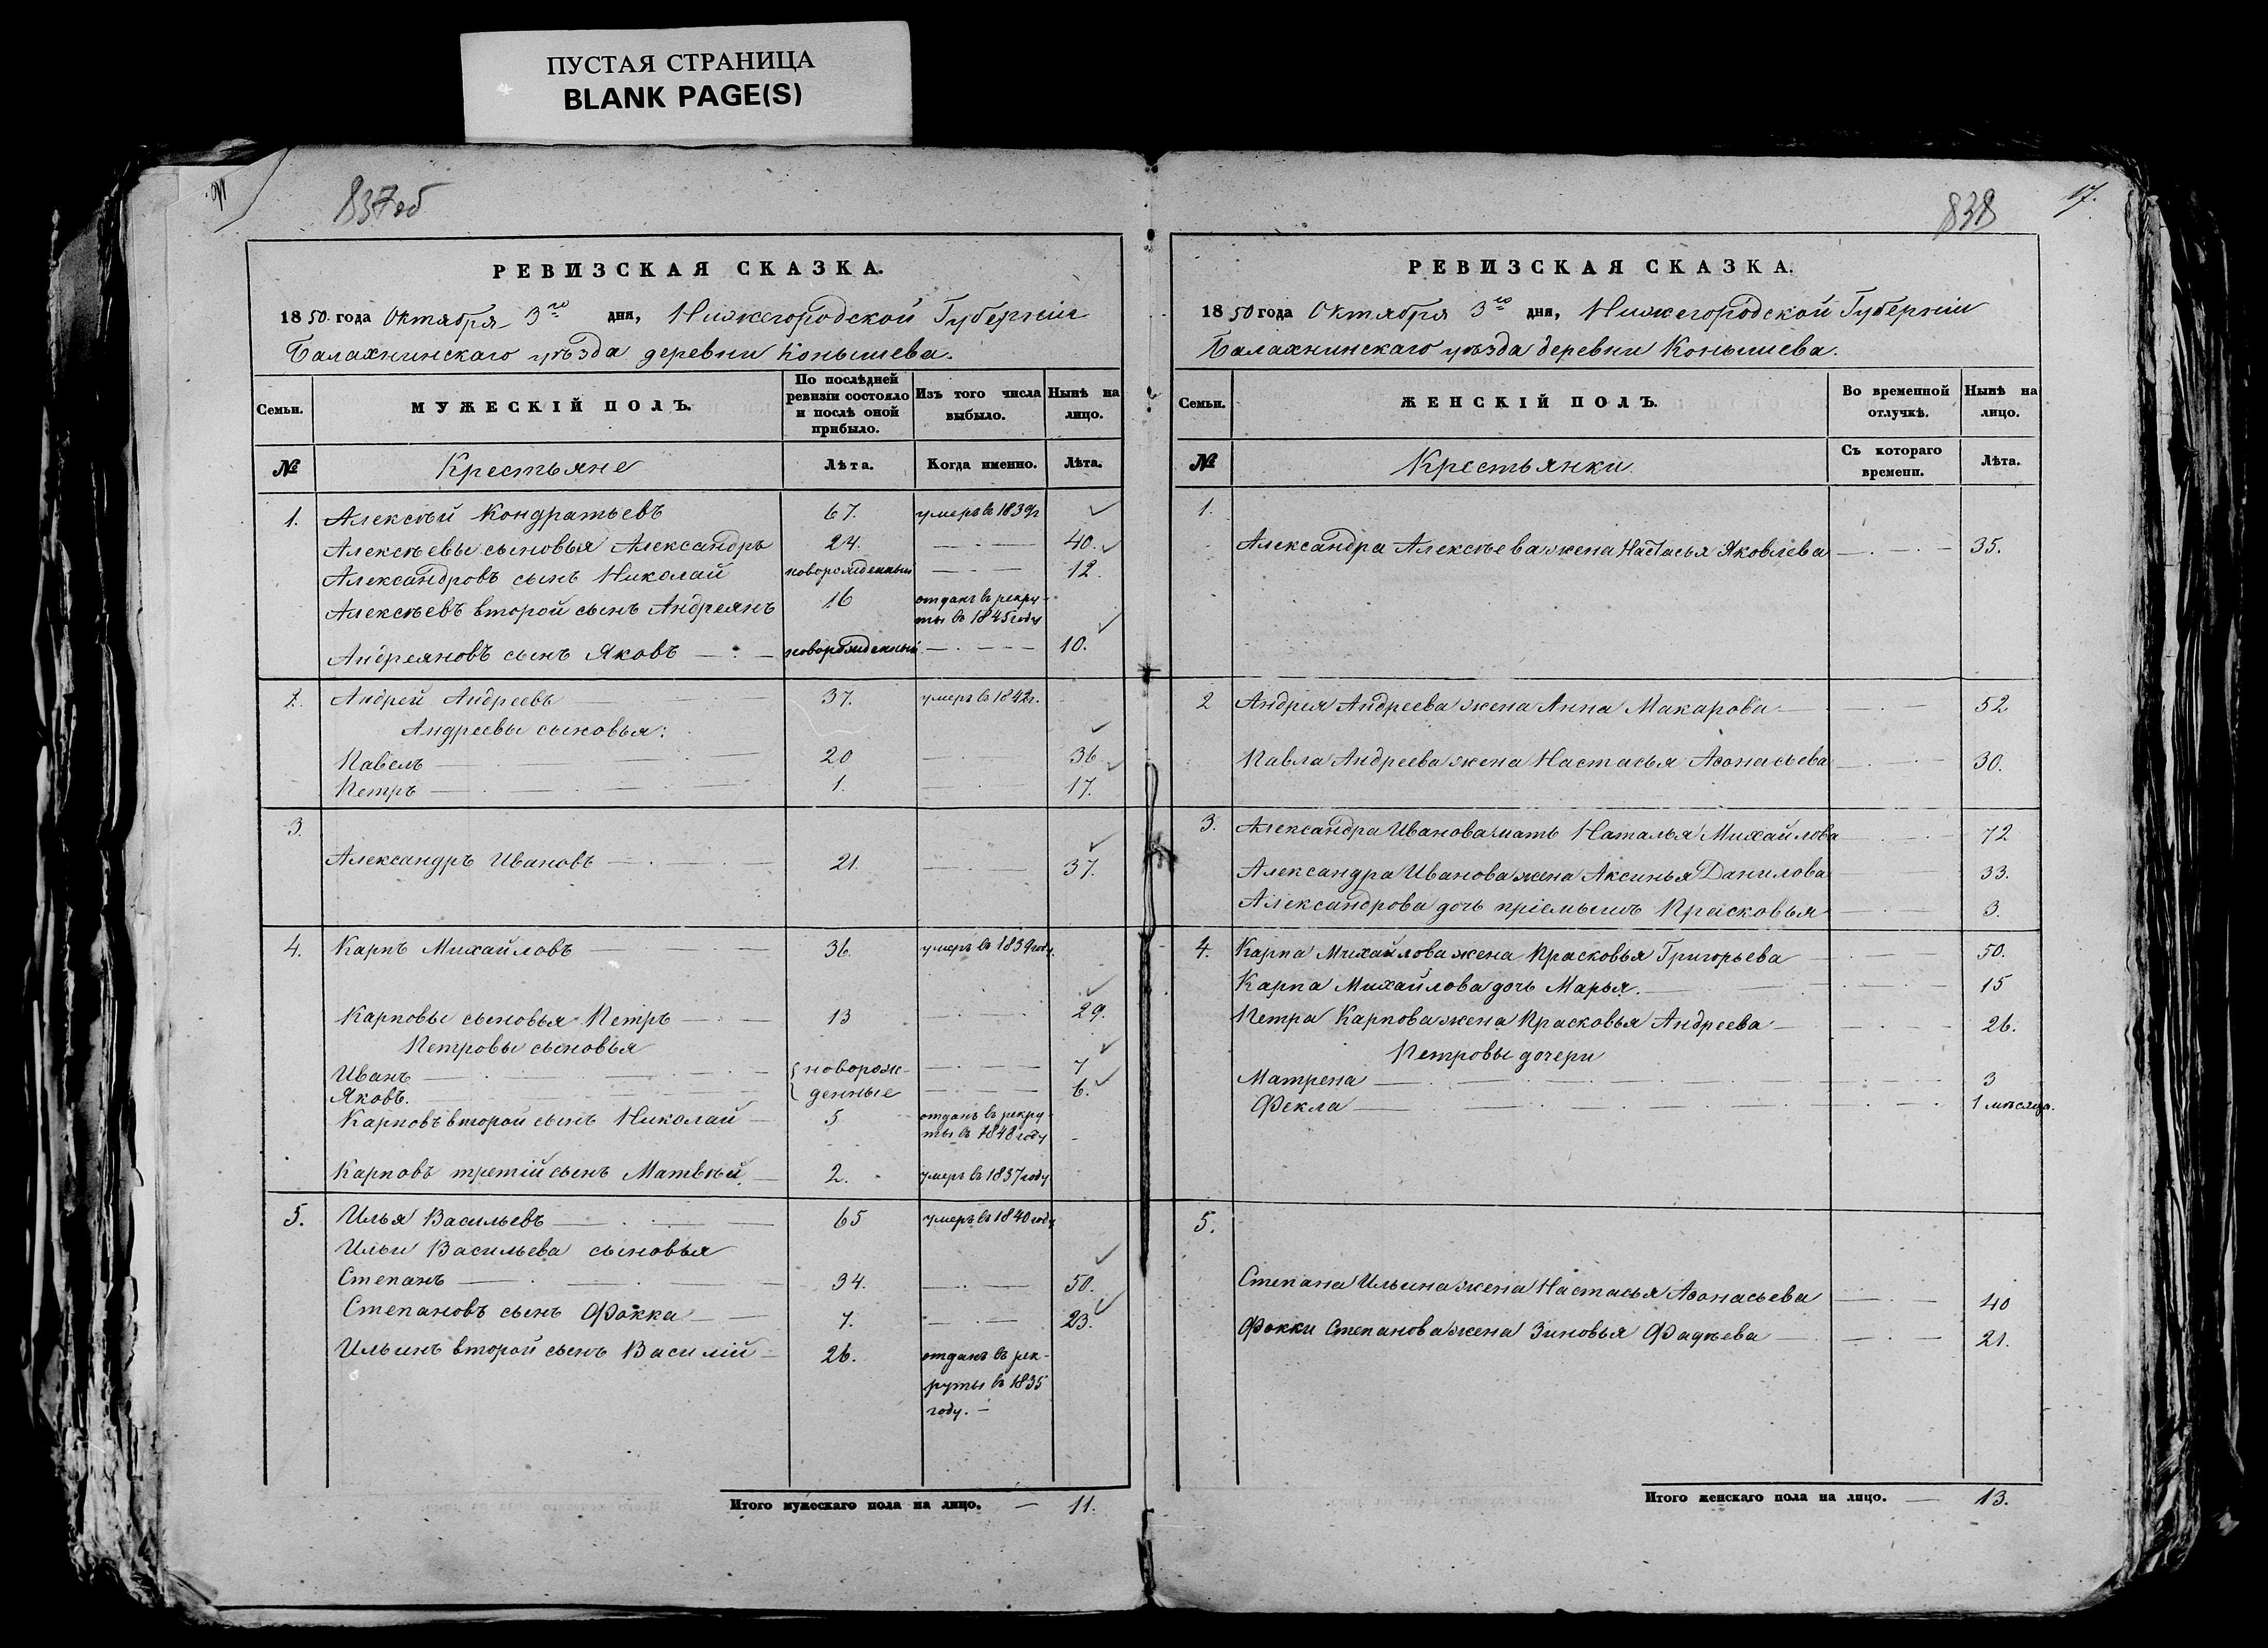 ПУСТАЯ СТРАНИЦА
BLANK PAGE(S)
837об
РЕВИЗСКАЯ СКАЗКА.
1850 года Октября 3го дня, Нижегородской Губерніи
Балахнинскаго уѣзда деревни Конышева.
Семьи. МУЖЕСКІЙ ПОЛЪ. По послѣдней ревизіи состояло и послѣ оной прибыло. Изъ того числа выбыло. Нынѣ на лицо.
№ Крестьяне Лѣта. Когда именно. Лѣта.
1. Алексѣй Кондратьевъ 67. умеръ в 1839г
Алексѣевы сыновья Александръ 24. 40.
Александровъ сынъ Николай новорожденный 12.
Алексѣевъ второй сынъ Андреянъ 16 отданъ въ рекру-
ты въ 1845 году
Андреяновъ сынъ Яковъ новорожденный 10.
2. Андрей Андреевъ 37. умеръ в 1842г.
Андреевы сыновья:
Павелъ 20 36
Петръ 1. 17.
3.
Александръ Ивановъ 21. 37.
4. Карпъ Михайловъ 36. умеръ въ 1839 году.
Карповы сыновья Петръ 13 29.
Петровы сыновья
Иванъ новорож- 7
Яковъ. денные 6.
Карповъ второй сынъ Николай 5 отданъ въ рекру-
ты въ 1848 году
Карповъ третій сынъ Матвѣй. 2. умеръ в 1837 году
5. Илья Васильевъ 65 умеръ въ 1840 году
Ильи Васильева сыновья
Степанъ 34. 50.
Степановъ сынъ Фокка 7. 23.
Ильинъ второй сынъ Василій 26. отданъ въ рек-
руты въ 1835
году.
Итого мужескаго пола на лицо. 11.
838
17.
РЕВИЗСКАЯ СКАЗКА.
1850 года Октября 3го дня, Нижегородской Губерніи
Балахнинскаго уѣзда деревни Конышева.
Семьи. ЖЕНСКІЙ ПОЛЪ. Во временной отлучкѣ. Нынѣ на лицо.
№ Крестьянки Съ котораго времени. Лѣта.
1.
Александра Алексѣева жена Настасья Яковлева 35.
2 Андрея Андреева жена Анна Макарова 52
Павла Андреева жена Настасья Аѳонасьева 30.
3. Александра Иванова мать Наталья Михайлова 72
Александра Иванова жена Аксинья Данилова 33.
Александрова дочь пріемышъ Прасковья 3.
4. Карпа Михайлова жена Прасковья Григорьева 50.
Карпа Михайлова дочь Марья. 15
Петра Карпова жена Прасковья Андреева 26.
Петровы дочери
Матрена 3
Фекла 1 мѣсяца.
5.
Степана Ильина жена Настасья Аѳонасьева 40
Фокки Степанова жена Зиновья Фадѣева 21.
Итого женскаго пола на лицо. 13.